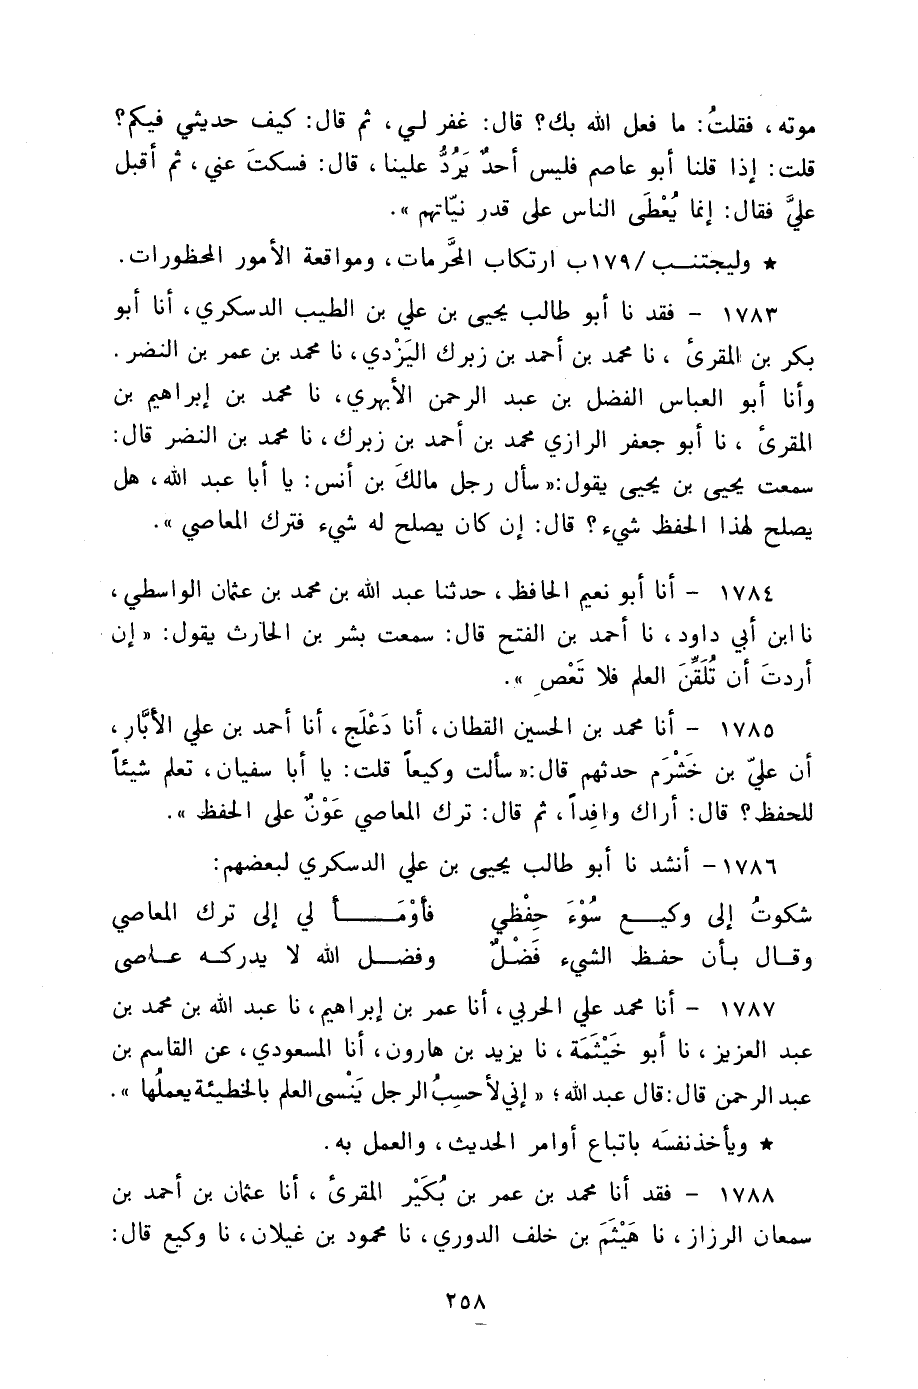 موته، فقلتُ: ما فعل الله بك؟ قال: غفر لي، ثم قال: كيف حديثي فيكم؟
قلت: إذا قلنا أبو عاصم فليس أحدٌ يَرُدُّ علينا، قال: فسكتَ عني، ثم أقبل
عليَّ فقال: إنما يُعْطَى الناس على قدر نيّاتهم ».
★ وليجتنب /١٧٩ب ارتكاب المحَّرمات، ومواقعة الأمور المحظورات.
١٧٨٣ - فقد نا أبو طالب يحيى بن علي بن الطيب الدسكري، أنا أبو
بكر بن المقرىء، نا محمد بن أحمد بن زبرك اليَزْدي، نا محمد بن عمر بن النضر.
وأنا أبو العباس الفضل بن عبد الرحمن الأبهري، نا محمد بن إبراهيم بن
المقرىء، نا أبو جعفر الرازي محمد بن أحمد بن زبرك، نا محمد بن النضر قال:
سمعت يحيى بن يحيى يقول:« سأل رجل مالكَ بن أنس: يا أبا عبد الله، هل
يصلح لهذا الحفظ شيء؟ قال: إن كان يصلح له شيء فترك المعاصي ».
١٧٨٤ - أنا أبو نعيم الحافظ، حدثنا عبد الله بن محمد بن عثمان الواسطي،
نا ابن أبي داود، نا أحمد بن الفتح قال: سمعت بشر بن الحارث يقول: « إن
أردتَ أن تُلَقَّنَ العلم فلا تَعْصِ ».
١٧٨٥ - أنا محمد بن الحسين القطان، أنا دَعْلَج، أنا أحمد بن علي الأبَّار،
أن عليّ بن خَشْرَم حدثهم قال:« سألت وكيعاً قلت: يا أبا سفيان، تعلم شيئاً
للحفظ؟ قال: أراك وافِداً، ثم قال: ترك المعاصي عَوْنٌ على الحفظ ».
١٧٨٦ - أنشد نا أبو طالب يحيى بن علي الدسكري لبعضهم:
شكوتُ إلى وكيع سُوْءَ حِفْظي فأوْمَأ لي إلى ترك المعاصي
وقال بأن حفظ الشيء فَضْلٌ وفضل الله لا يدركه عاصى
١٧٨٧ - أنا محمد علي الحربي، أنا عمر بن إبراهيم، نا عبد الله بن محمد بن
عبد العزيز، نا أبو خَيْثَمَة، نا يزيد بن هارون، أنا المسعودي، عن القاسم بن
عبد الرحمن قال: قال عبد الله؛ « إني لأحسِبُ الرجل يَنْسى العلم بالخطيئة يعملُها ».
★ ويأخذ نفسَه باتباع أوامر الحديث، والعمل به.
١٧٨٨ - فقد أنا محمد بن عمر بن بُكَيْر المقرىء، أنا عثمان بن أحمد بن
سمعان الرزاز، نا هَيْثَمَ بن خلف الدوري، نا محمود بن غيلان، نا وكيع قال:
٢٥٨